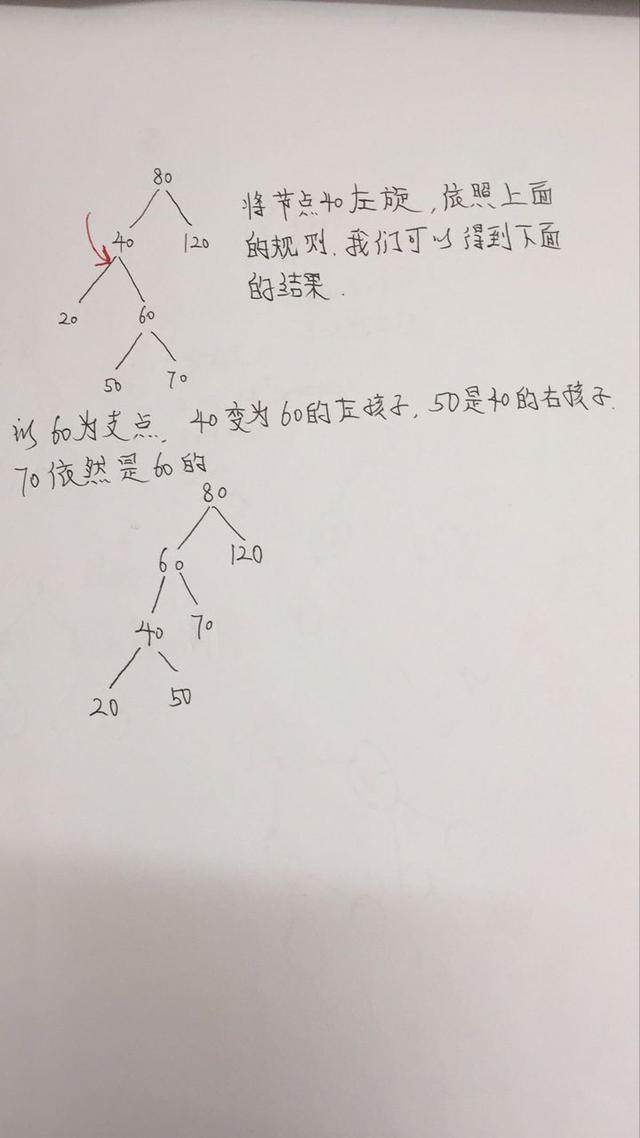 80
40
120
20
60
50
70
将节点40左旋,依照上面
的规则.我们可以得到下面
的结果.
以60为支点. 40变为60的左孩子, 50是40的右孩子.
70依然是60的
80
60
120
40
70
20
50